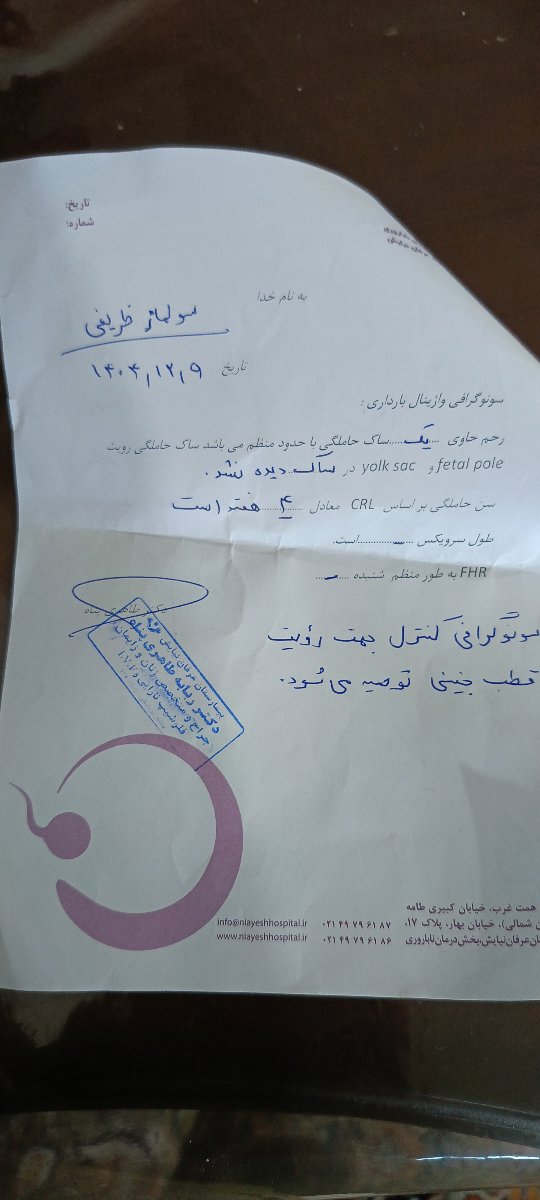 تاریخ:
شماره:
به نام خدا
تاریخ ۱۴۰۴,۱۲,۹
سونوگرافی واژینال بارداری :
رحم حاوی ....یک.....ساک حاملگی با حدود منظم می باشد ساک حاملگی رویت
fetal pole و yolk sac در ساک دیده نشد.
سن حاملگی بر اساس CRL معادل ....۴.... هفته است
طول سرویکس ................است.
FHR به طور منظم شنیده ..........
سونوگرافی کنترل جهت رؤیت
قطب جنینی توصیه می شود.
بیمارستان عرفان نیایش
دکتر ربابه طاهری پناه
جراح و متخصص زنان و زایمان
فلوشیپ نازایی و I.V.F
همت غرب، خیابان کبیری طامه
ن شمالی)، خیابان بهار، پلاک ۱۷،
۰۲۱ ۴۹ ۷۹ ۶۱ ۸۷ info@niayeshhospital.ir
عرفان نیایش،بخش درمان ناباروری ۰۲۱ ۴۹ ۷۹ ۶۱ ۸۶ www.niayeshhospital.ir